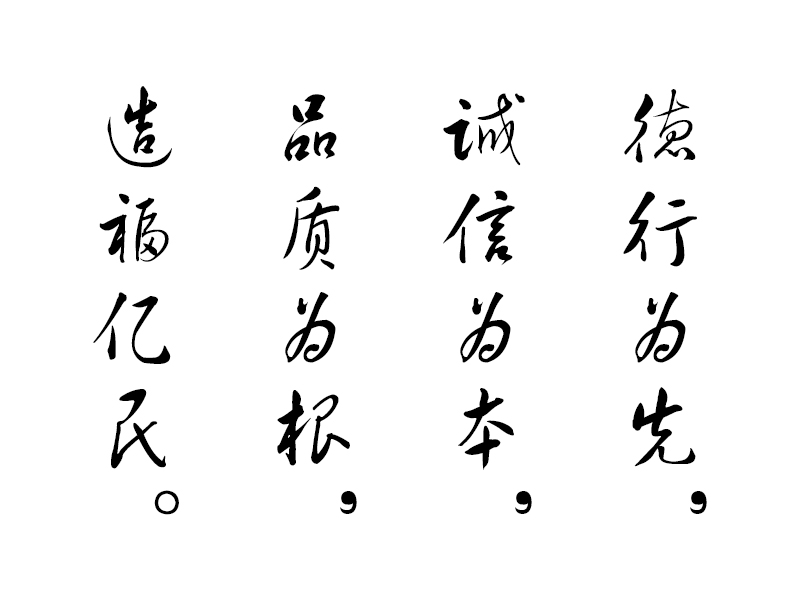 德行为先，
诚信为本，
品质为根，
造福亿民。